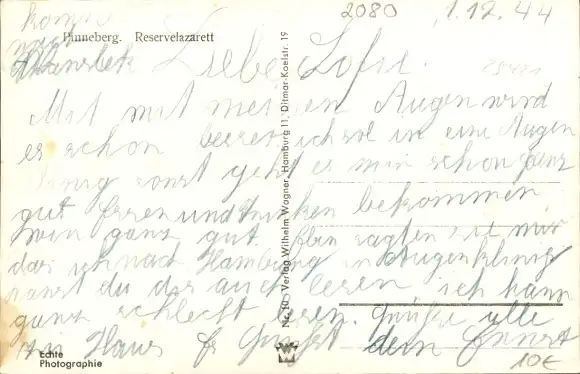 komm 2080 1.12.44
nach Pinneberg. Reservelazarett
Liebe
Mit mit meinen Augen wird
es schon ich sol in eine Augen
sonst geht es mir schon ganz
gut Essen und trinken bekommen
ganz gut. Eben sagten sie mir
das ich nach Hamburg in Augenklinig
du das auch lesen ich kann
ganz schlecht lesen. Grüße alle
im Haus Es Grüßt dein Ernst
Nr. 50 Verlag Wilhelm Wagner, Hamburg 11, Ditmar-Koelstr. 19
Echte
Photographie
10€